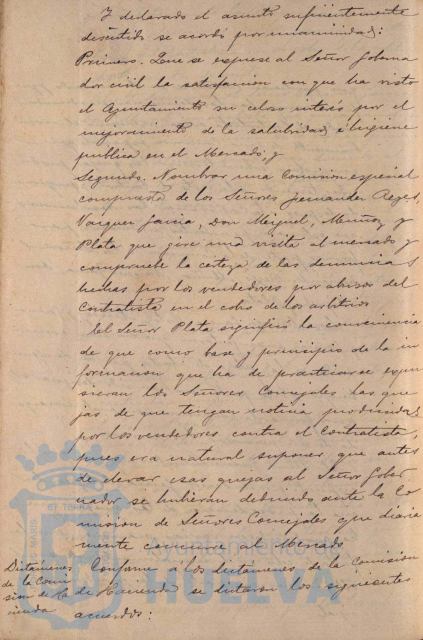 Y declarado el asunto suficientemente
discutido se acordó por unanimidad:
Primero. Que se exprese al Señor Goberna
dor civil la satisfaccion con que ha visto
el Ayuntamiento su celoso interés por el
mejoramiento de la salubridad é higiene
publica en el Mercado; y
Segundo. Nombrar una Comision especial
compuesta de los Señores Fernandez Reyes,
Vazquez Garcia, Don Miguel, Muñoz y
Plata que gire una visita al mercado y
compruebe la certeza de las denuncias
hechas por los vendedores por abusos del
Contratista en el cobro de los arbitrios
El Señor Plata significó la conveniencia
de que como base y principio de la in
formacion que ha de practicarse expu
sieran los Señores Concejales las que
jas de que tengan noticia producidas
por los vendedores contra el Contratista,
pues era natural suponer que antes
de elevar esas quejas al Señor Gober
nador se hubieran deducido ante la Co
mision de Señores Concejales que diaria
mente concurre al Mercado
Dictámenes
de la Comi
sion de Ha
cienda
Conforme á los dictámenes de la Comision
de Hacienda se dictaron los siguientes
acuerdos:
Ayuntamiento de
HUELVA